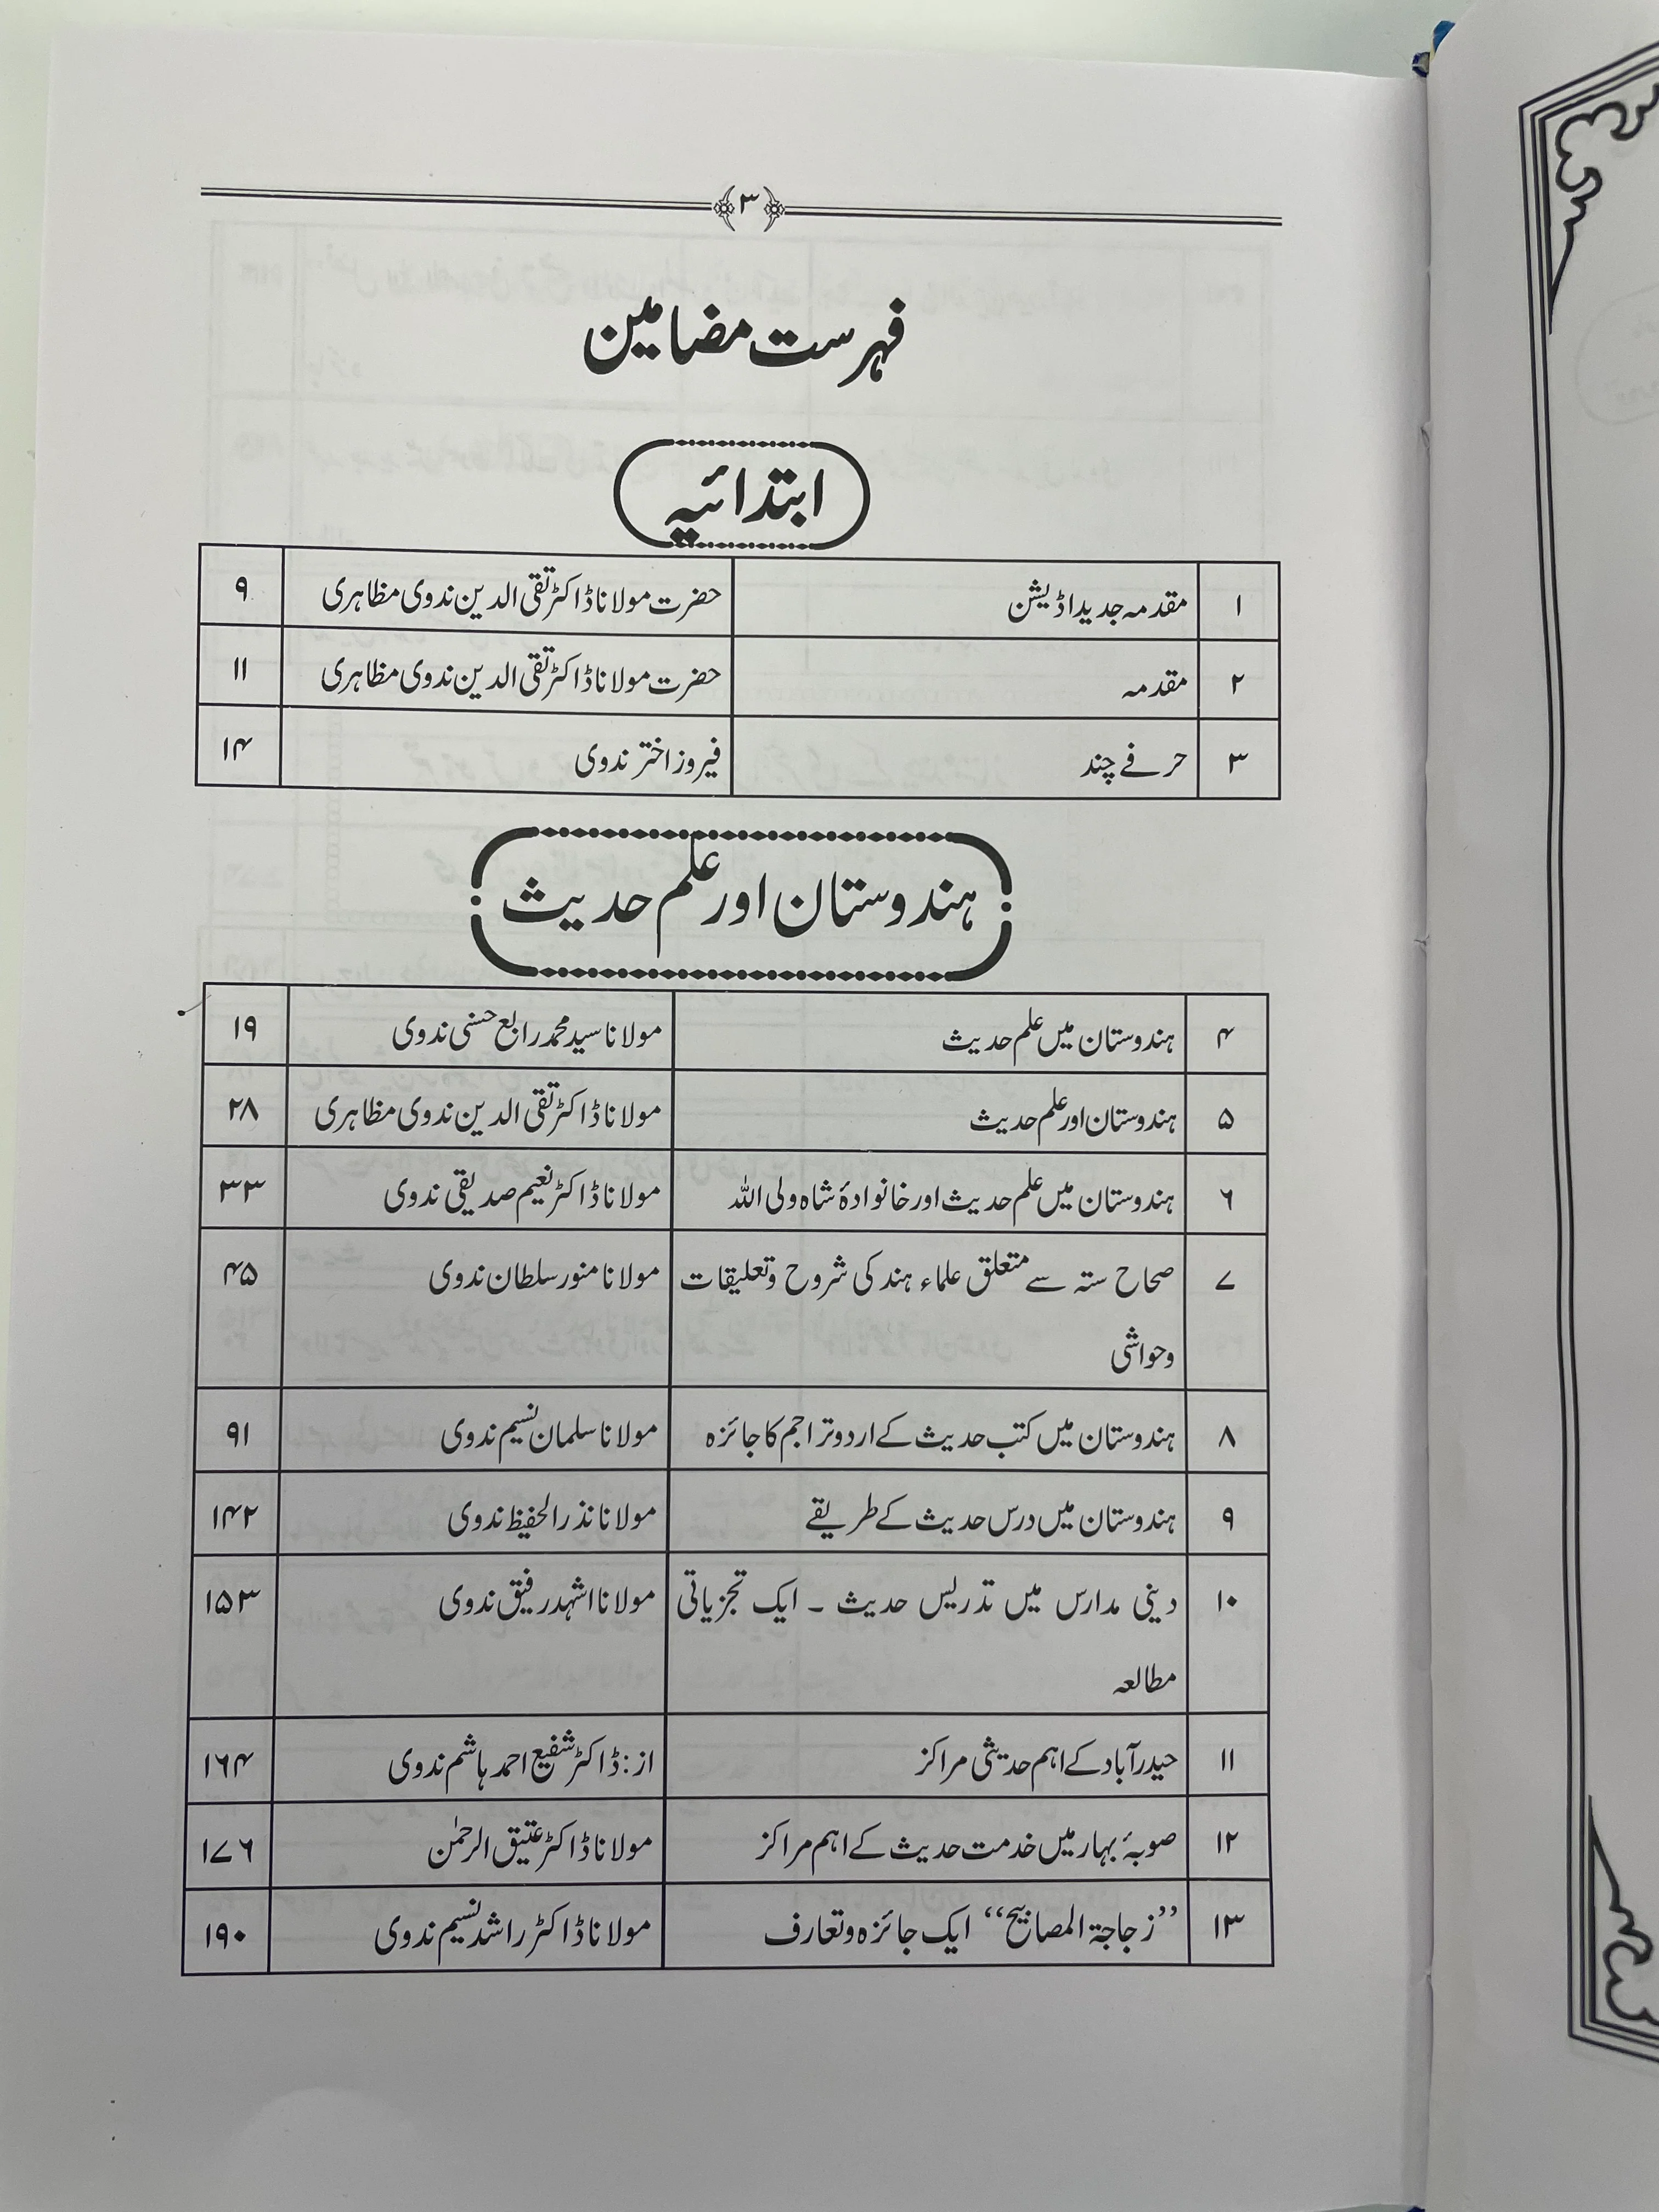 ۳
فہرست مضامین
ابتدائیہ
۱ مقدمہ جدید اڈیشن حضرت مولانا ڈاکٹر تقی الدین ندوی مظاہری ۹
۲ مقدمہ حضرت مولانا ڈاکٹر تقی الدین ندوی مظاہری ۱۱
۳ حرفے چند فیروز اختر ندوی ۱۴
ہندوستان اور علم حدیث
۴ ہندوستان میں علم حدیث مولانا سید محمد رابع حسنی ندوی ۱۹
۵ ہندوستان اور علم حدیث مولانا ڈاکٹر تقی الدین ندوی مظاہری ۲۸
۶ ہندوستان میں علم حدیث اور خانوادۂ شاہ ولی اللہ مولانا ڈاکٹر نعیم صدیقی ندوی ۳۳
۷ صحاح ستہ سے متعلق علماء ہند کی شروح وتعلیقات مولانا منور سلطان ندوی ۴۵
وحواشی
۸ ہندوستان میں کتب حدیث کے اردو تراجم کا جائزہ مولانا سلمان نسیم ندوی ۹۱
۹ ہندوستان میں درس حدیث کے طریقے مولانا نذر الحفیظ ندوی ۱۴۲
۱۰ دینی مدارس میں تدریس حدیث ۔ ایک تجزیاتی مولانا اشہد رفیق ندوی ۱۵۳
مطالعہ
۱۱ حیدرآباد کے اہم حدیثی مراکز از: ڈاکٹر شفیع احمد ہاشم ندوی ۱۶۴
۱۲ صوبۂ بہار میں خدمت حدیث کے اہم مراکز مولانا ڈاکٹر عتیق الرحمٰن ۱۷۶
۱۳ ”زجاجۃ المصابیح“ ایک جائزہ وتعارف مولانا ڈاکٹر راشد نسیم ندوی ۱۹۰